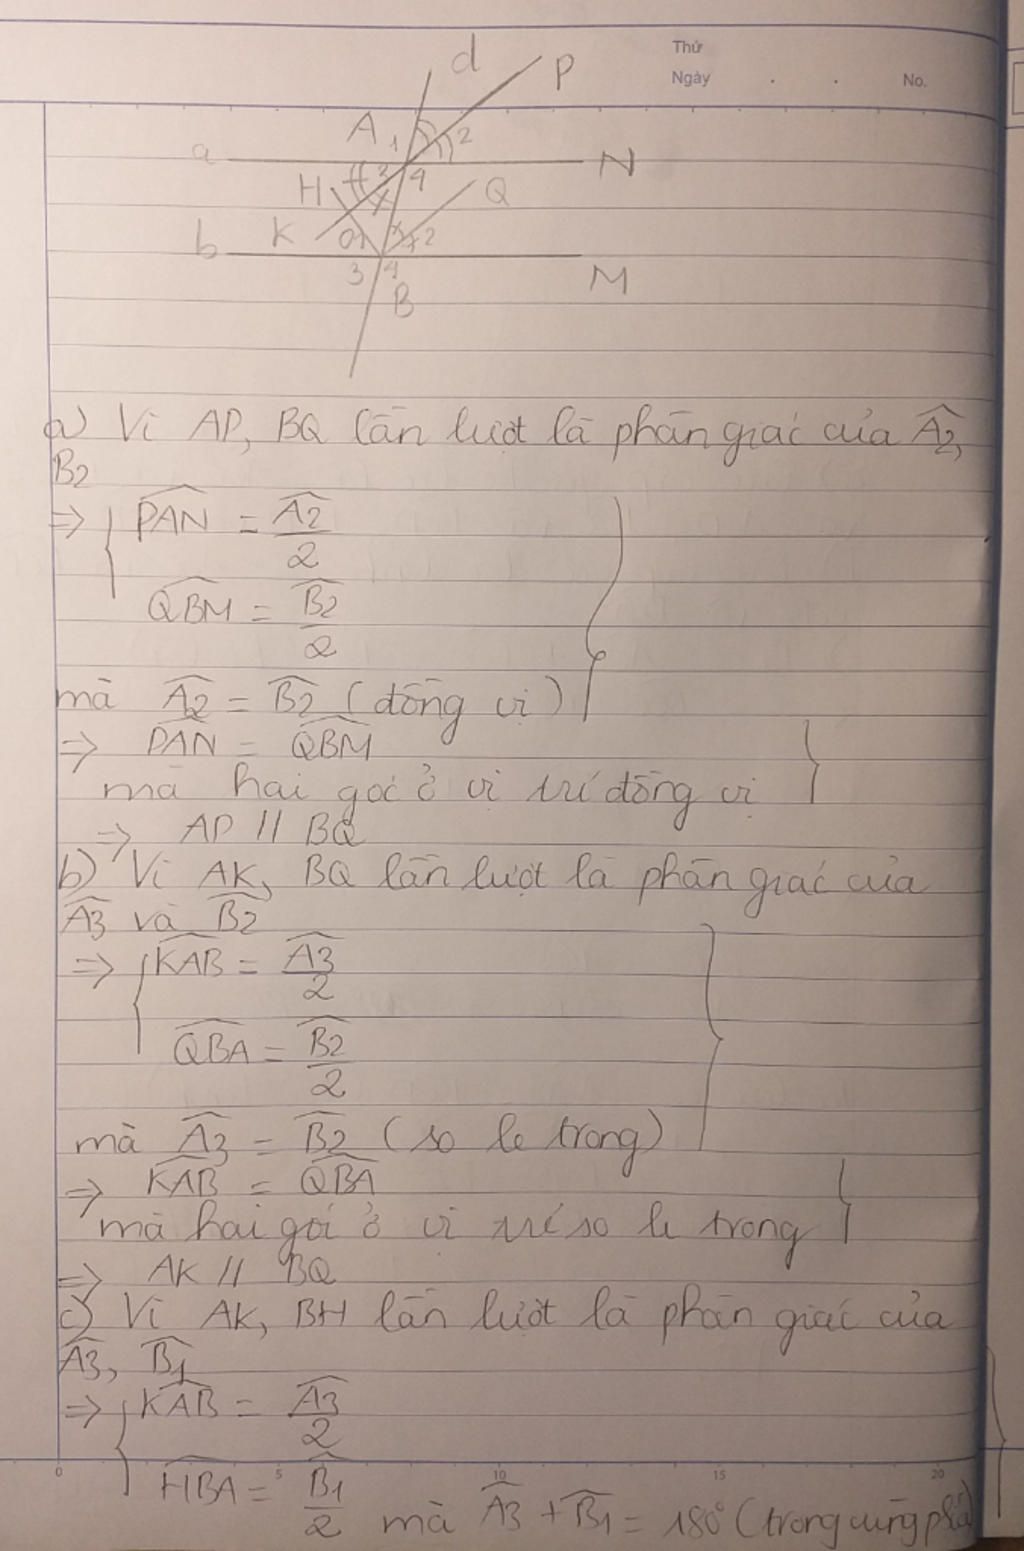 Thứ
Ngày . . No.
d P
A 1 2
a 3 4 N
H Q
K 1 2
b 3 4 M
B
a) Vì AP, BQ lần lượt là phân giác của Â2,
B2
=> { PAN = A2/2
QBM = B2/2
mà A2 = B2 (đồng vị)
=> PAN = QBM
mà hai góc ở vị trí đồng vị
=> AP // BQ
b) Vì AK, BQ lần lượt là phân giác của
A3 và B2
=> { KAB = A3/2
QBA = B2/2
mà A3 = B2 (so le trong)
=> KAB = QBA
mà hai gói ở vị trí so le trong
=> AK // BQ
c) Vì AK, BH lần lượt là phân giác của
A3, B1
=> { KAB = A3/2
0 5 10 15 20
HBA = B1/2 mà A3 + B1 = 180° (trong cùng phía)